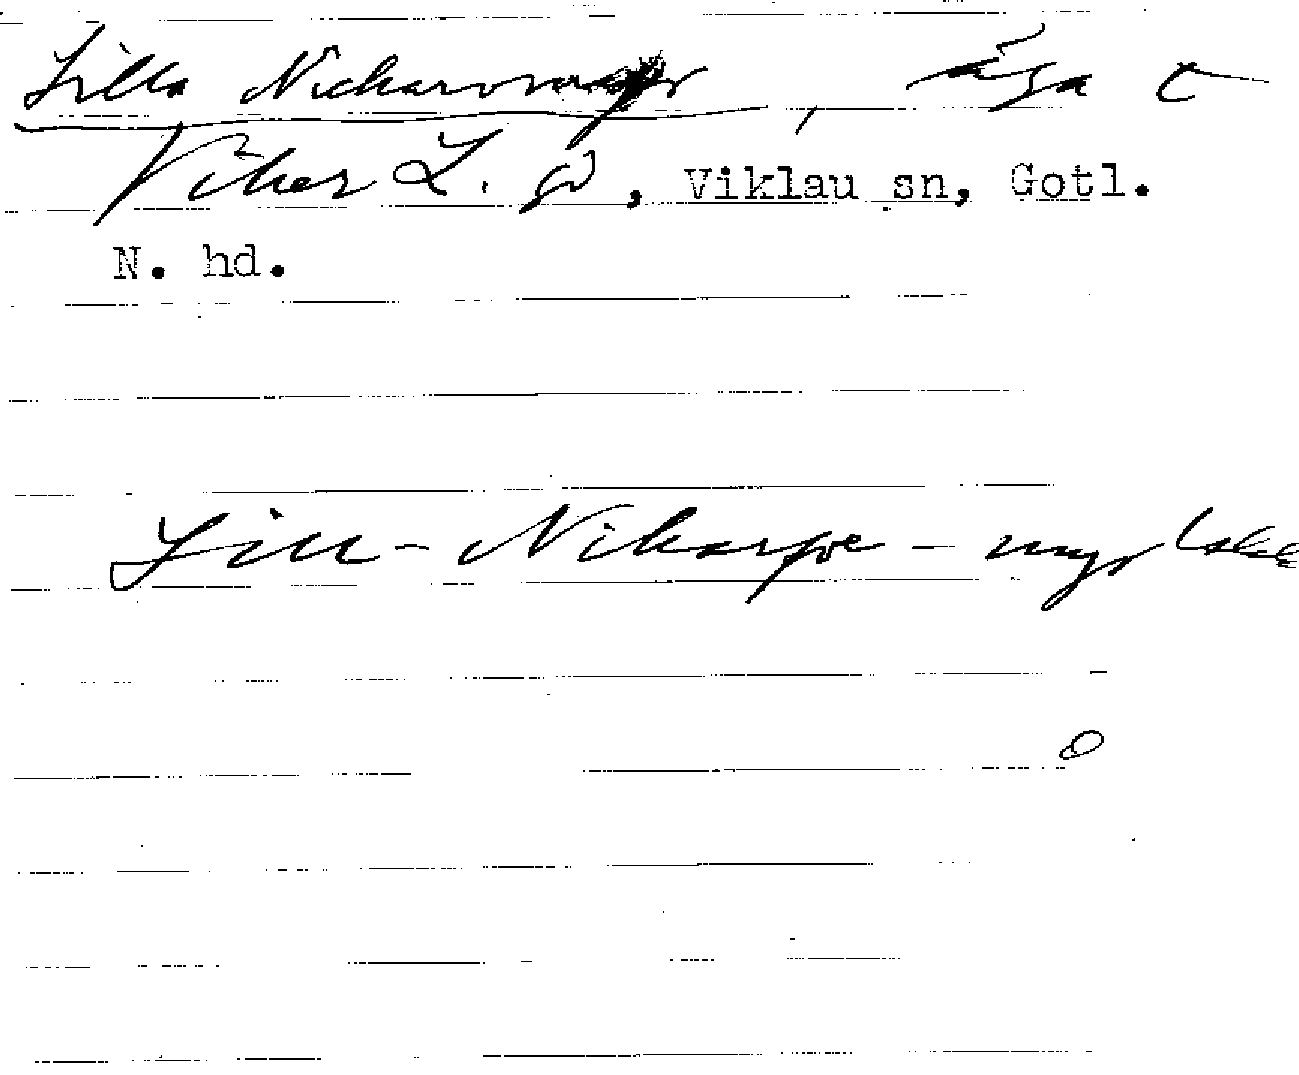 Lilla Nickarvemyr, äga t
Viker L. gd, Viklau sn, Gotl.
N. hd.
Lill-Nikarpe-myr